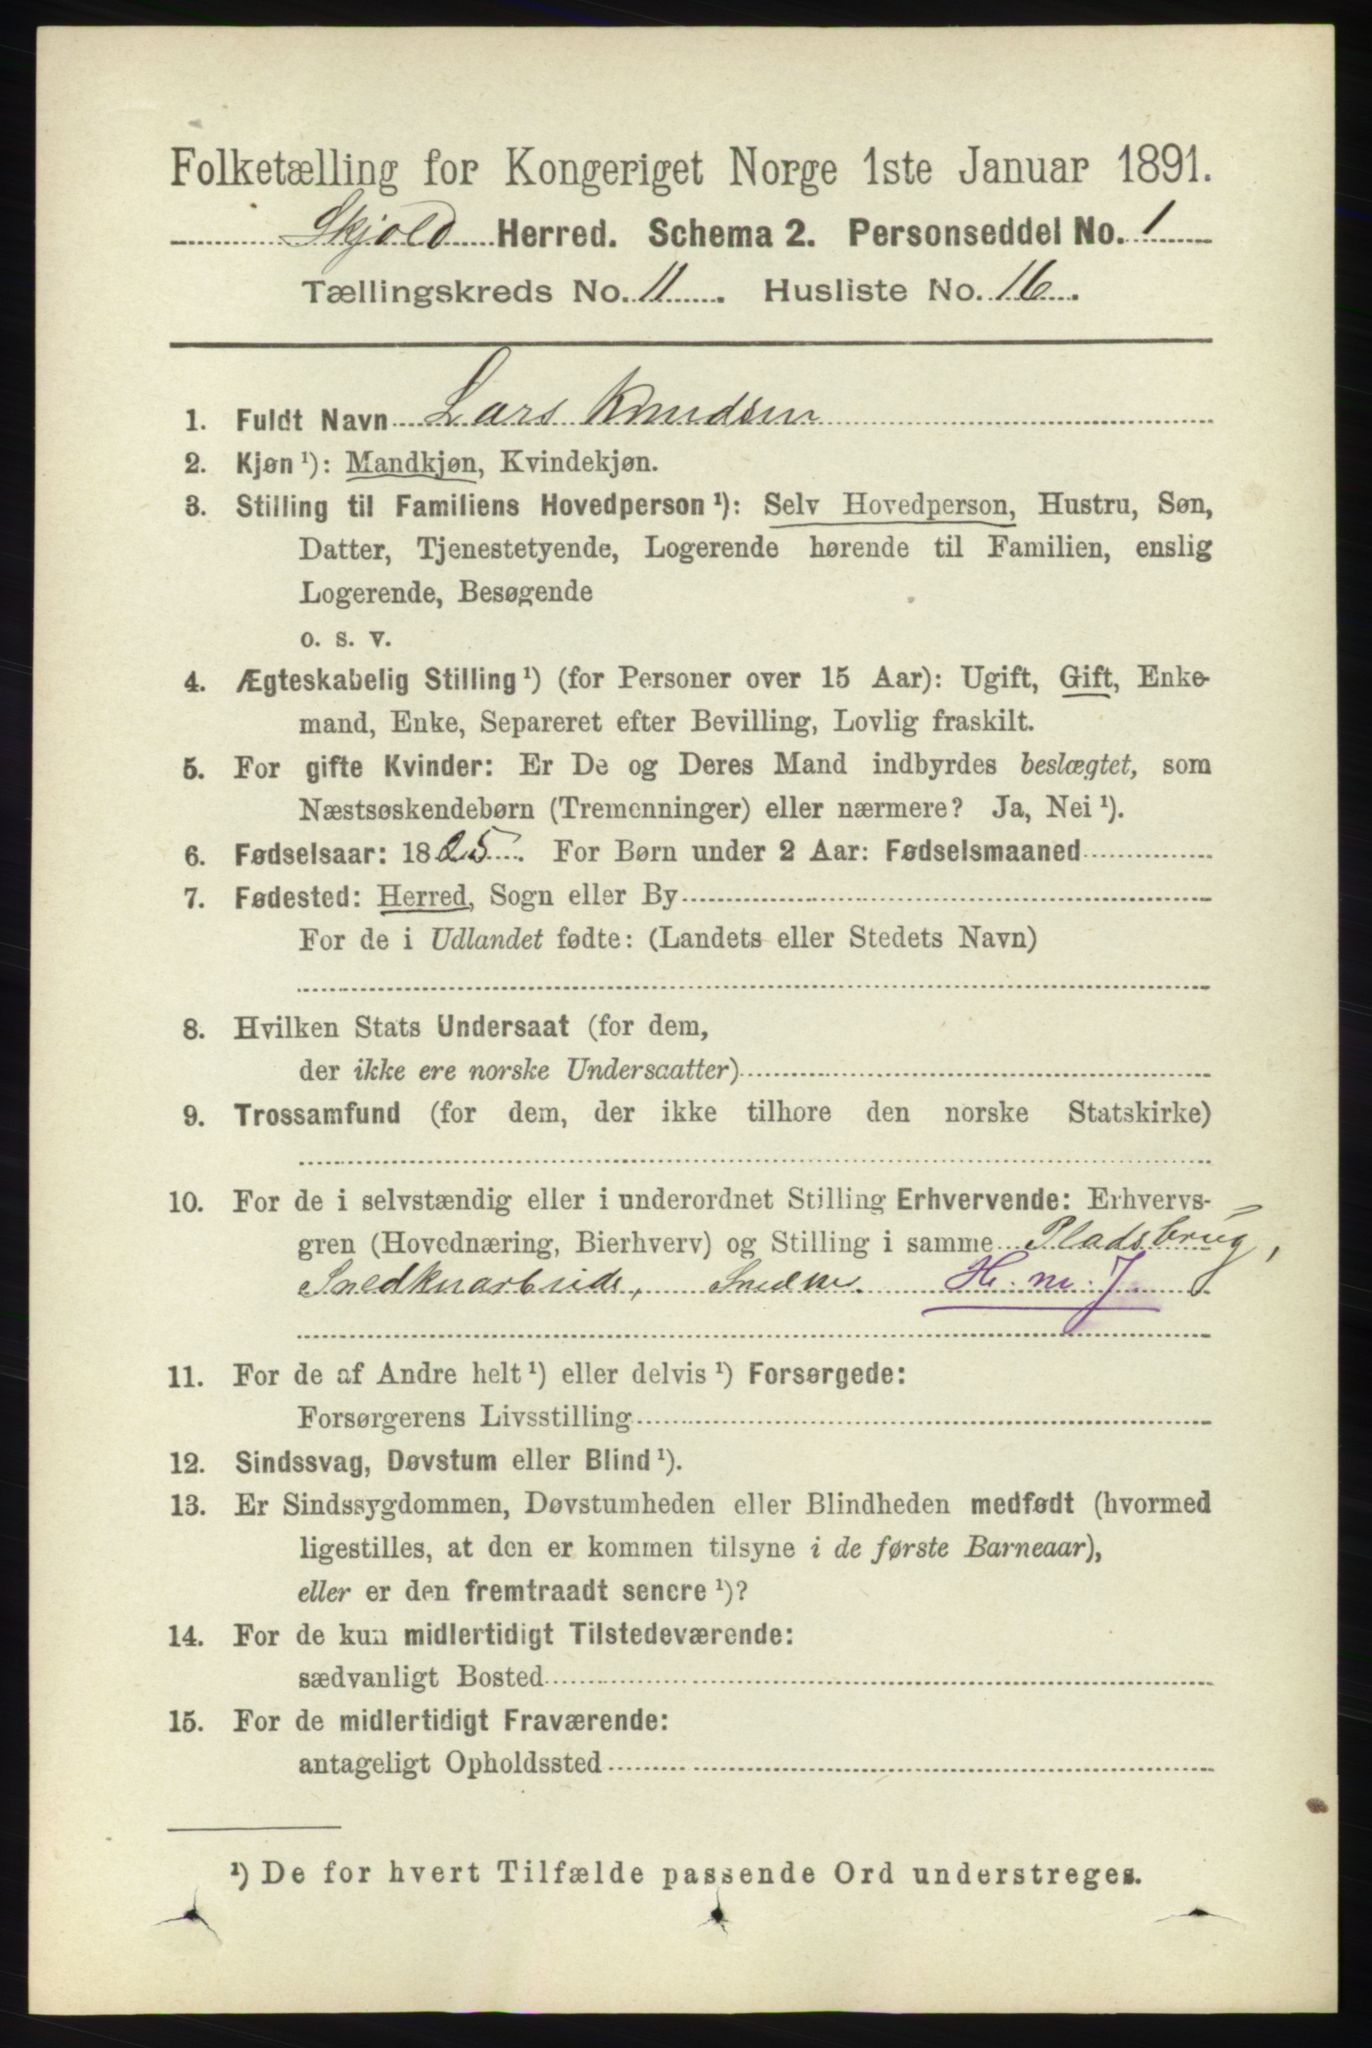 Folketælling for Kongeriget Norge 1ste Januar 1891.
Skjold Herred. Schema 2. Personseddel No. 1
Tællingskreds No. 11. Husliste No. 16.
1. Fuldt Navn Lars Knudsen
2. Kjøn ¹): Mandkjøn, Kvindekjøn.
3. Stilling til Familiens Hovedperson ¹): Selv Hovedperson, Hustru, Søn,
Datter, Tjenestetyende, Logerende hørende til Familien, enslig
Logerende, Besøgende
o. s. v.
4. Ægteskabelig Stilling ¹) (for Personer over 15 Aar): Ugift, Gift, Enke-
mand, Enke, Separeret efter Bevilling, Lovlig fraskilt.
5. For gifte Kvinder: Er De og Deres Mand indbyrdes beslægtet, som
Næstsøskendebørn (Tremenninger) eller nærmere? Ja, Nei ¹).
6. Fødselsaar: 1825. For Børn under 2 Aar: Fødselsmaaned
7. Fødested: Herred, Sogn eller By
For de i Udlandet fødte: (Landets eller Stedets Navn)
8. Hvilken Stats Undersaat (for dem,
der ikke ere norske Undersaatter)
9. Trossamfund (for dem, der ikke tilhøre den norske Statskirke)
10. For de i selvstændig eller i underordnet Stilling Erhvervende: Erhvervs-
gren (Hovednæring, Bierhverv) og Stilling i samme Pladsbrug,
Snedkerarbeide, Snedker. H. m. J
11. For de af Andre helt ¹) eller delvis ¹) Forsørgede:
Forsørgerens Livsstilling
12. Sindssvag, Døvstum eller Blind ¹).
13. Er Sindssygdommen, Døvstumheden eller Blindheden medfødt (hvormed
ligestilles, at den er kommen tilsyne i de første Barneaar),
eller er den fremtraadt senere ¹)?
14. For de kun midlertidigt Tilstedeværende:
sædvanligt Bosted
15. For de midlertidigt Fraværende:
antageligt Opholdssted
¹) De for hvert Tilfælde passende Ord understreges.